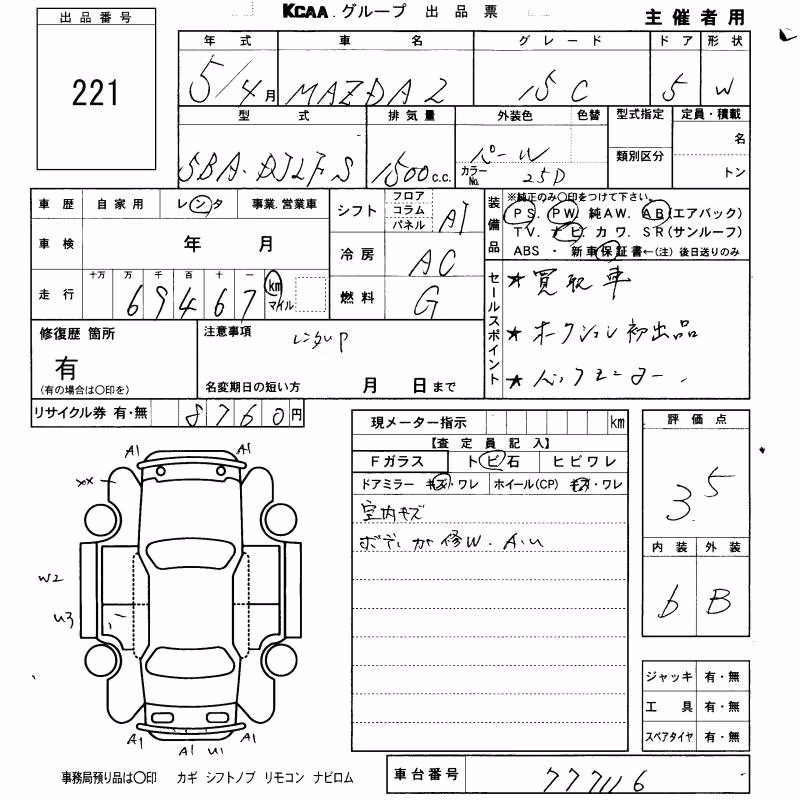 KCAA グループ 出品票
主催者用
出品番号
221
年式 車名 グレード ドア 形状
5/4月 MAZDA2 15C 5 W
型式 排気量 外装色 色替 型式指定 定員・積載
名
SBA-DJLFS 1500c.c. パール カラーNo. 25D 類別区分 トン
車歴 自家用 レンタ 事業.営業車
車検 年 月
走行 十万 万 千 百 十 一
69467 km マイル
シフト フロア コラム パネル AT
冷房 AC
燃料 G
装備品
※純正のみ〇印をつけて下さい。
PS. PW. 純AW. AB(エアバック)
TV. ナビ. カワ. SR(サンルーフ)
ABS ・ 新車保証書←(注)後日送りのみ
セールスポイント
★買取車
★オークション初出品
修復歴 箇所
有
(有の場合は〇印を)
注意事項
レンタUP
名変期日の短い方 月 日まで
リサイクル券 有・無 8760円
現メーター指示 km
【査定員記入】
Fガラス トビ石 ヒビワレ
ドアミラー キズ・ワレ ホイール(CP) キズ・ワレ
室内キズ
修W. A.U
評価点
3.5
内装 外装
6 B
A1 A1
XX
W2
U3
A1 A1 U1 A1
ジャッキ 有・無
工具 有・無
スペアタイヤ 有・無
事務局預り品は〇印 カギ シフトノブ リモコン ナビロム
車台番号 777116